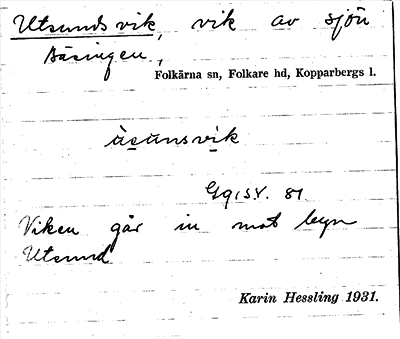 Utsunds vik, vik av sjön
Bäsingen,
Folkärna sn, Folkare hd, Kopparbergs l.
ùsunsvik
81
Viken går in mot byn
Utsund
Karin Hessling 1931.